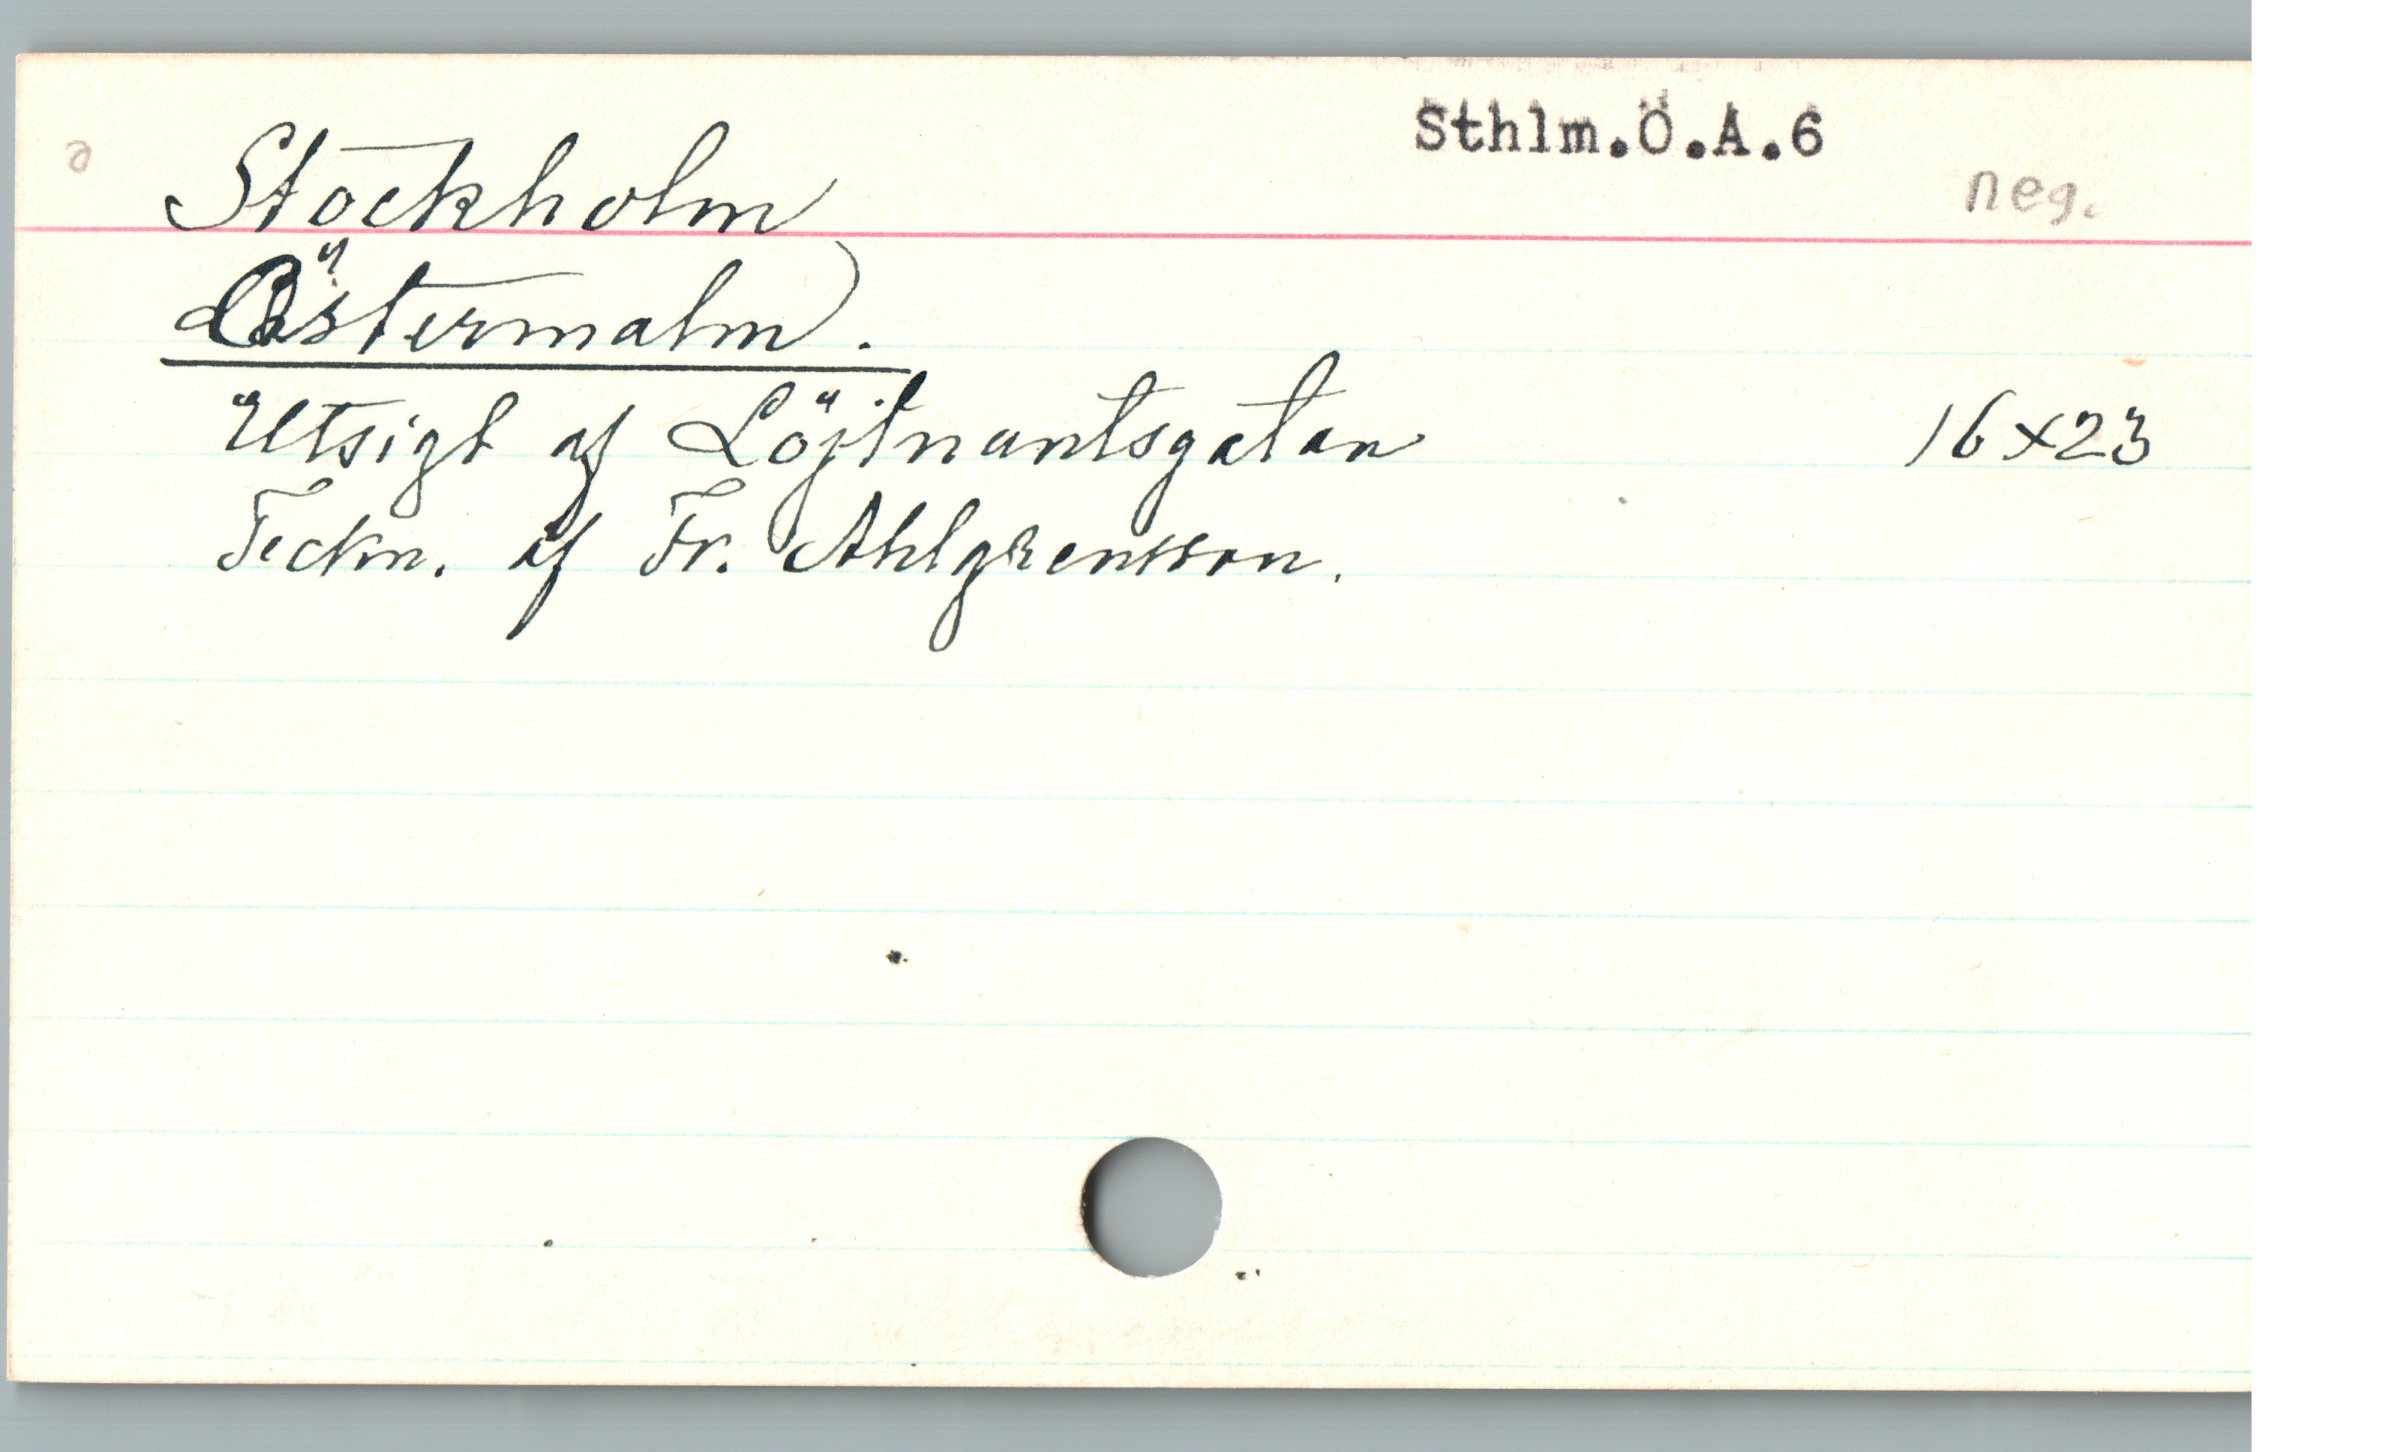 Sthlm.Ö.A.6
a Stockholm neg.
Östermalm.
Utsigt af Löjtnantsgatan 16x23
Teckn. af Fr. Ahlgrensson.